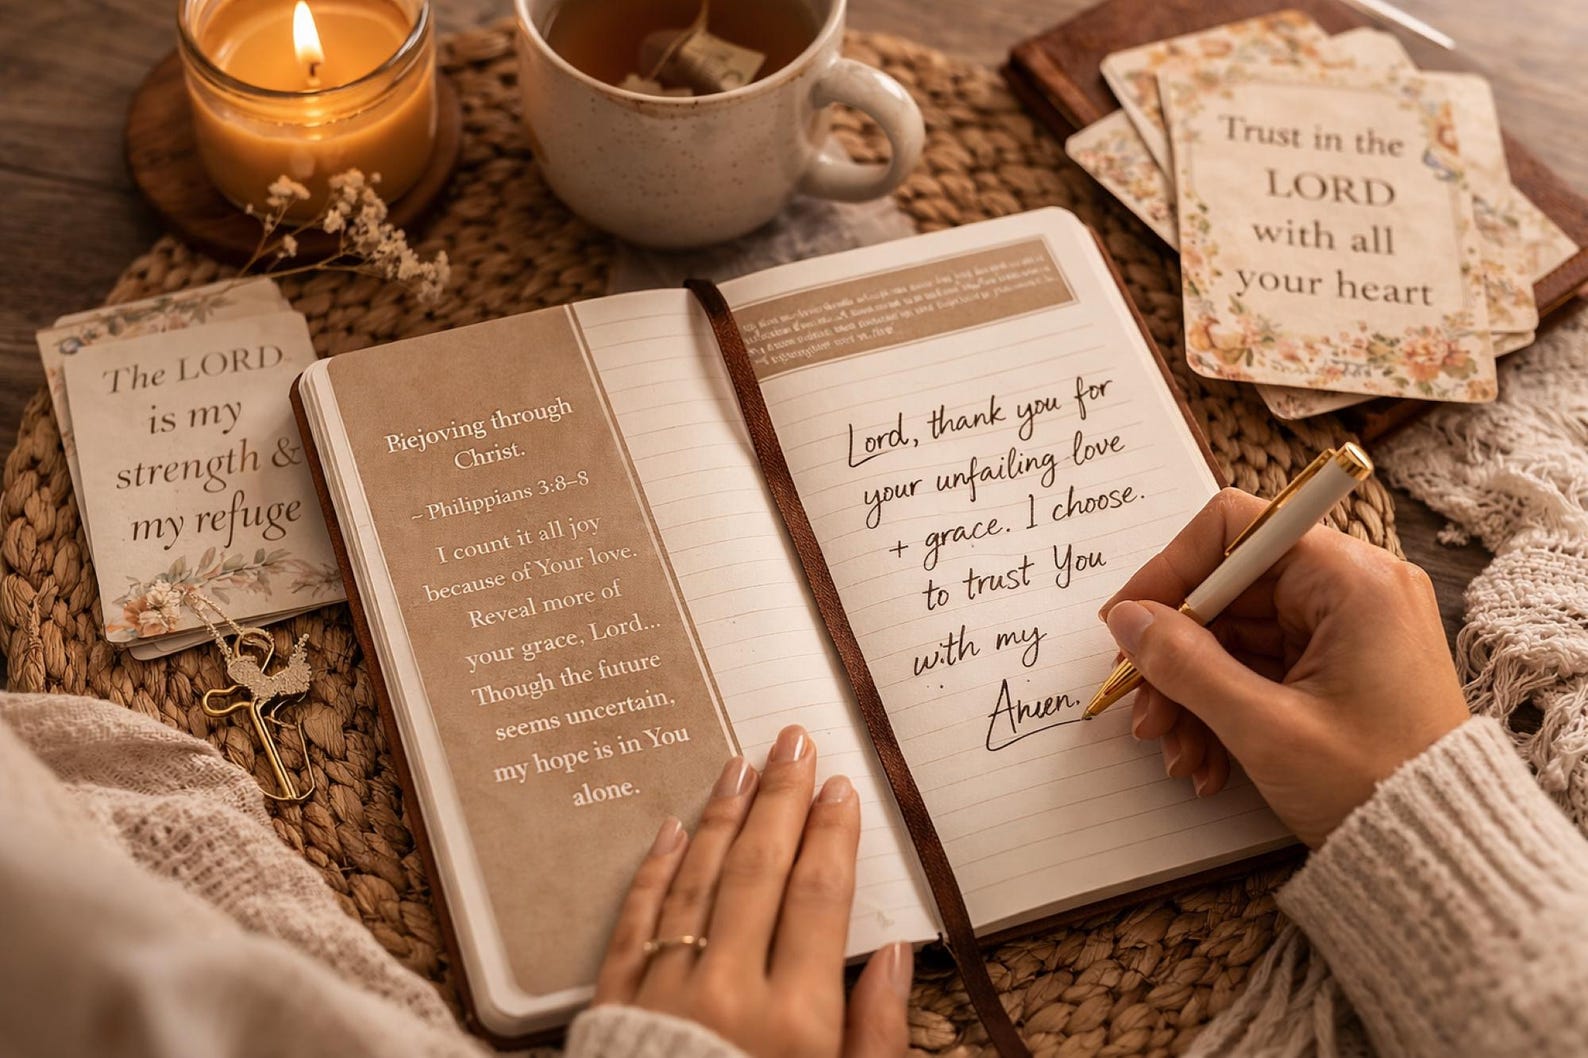 The LORD
is my
strength &
my refuge
Piejoving through
Christ.
~ Philippians 3:8–8
I count it all joy
because of Your love.
Reveal more of
your grace, Lord...
Though the future
seems uncertain,
my hope is in You
alone.
Lord, thank you for
your unfailing love
+ grace. I choose.
to trust You
with my
Amen.
Trust in the
LORD
with all
your heart